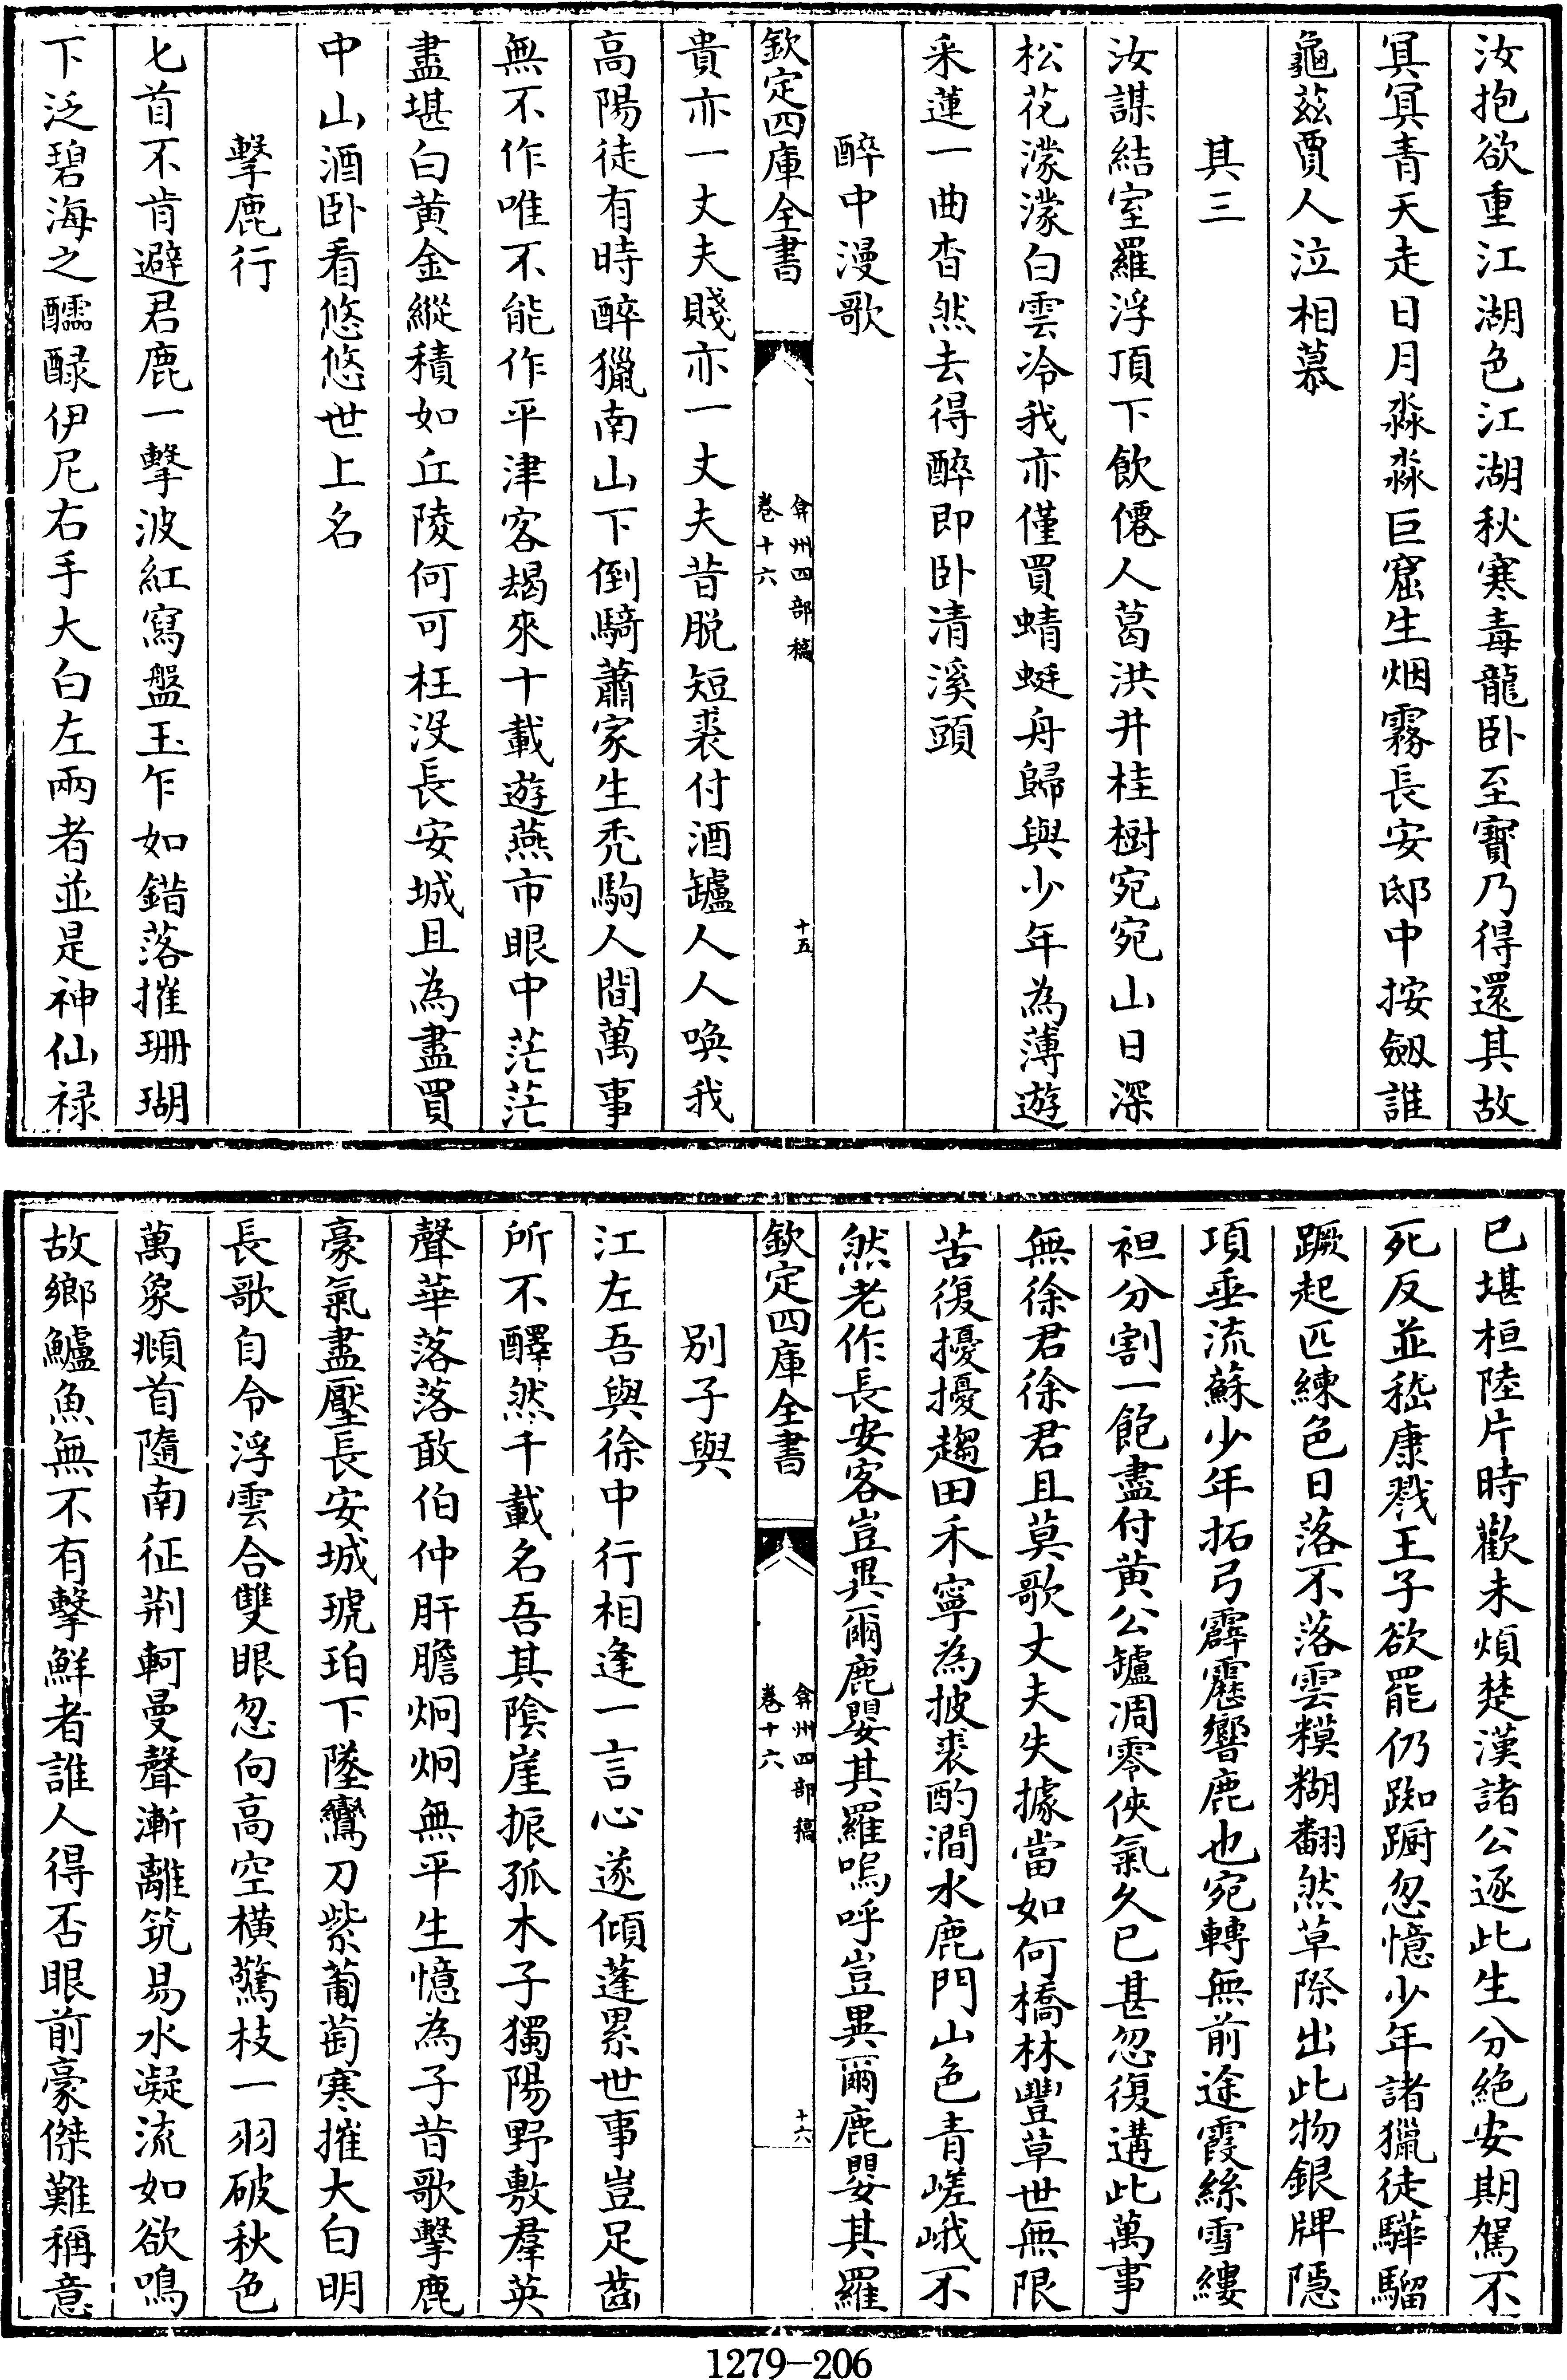 汝抱欲重江湖色江湖秋寒毒龍卧至寶乃得還其故
冥冥青天走日月淼淼巨窟生烟霧長安邸中按劒誰
龜茲賈人泣相慕
其三
汝謀結室羅浮頂下飲僊人葛洪井桂樹宛宛山日深
松花濛濛白雲冷我亦僅買蜻蜓舟歸與少年為薄遊
采蓮一曲杳然去得醉即卧清溪頭
醉中漫歌
欽定四庫全書
弇州四部稿
卷十六
十五
貴亦一丈夫賤亦一丈夫昔脱短裘付酒罏人人喚我
高陽徒有時醉獵南山下倒騎蕭家生秃駒人間萬事
無不作唯不能作平津客朅來十載遊燕市眼中茫茫
盡堪白黄金縱積如丘陵何可枉没長安城且為盡買
中山酒卧看悠悠世上名
擊鹿行
匕首不肯避君鹿一擊波紅寫盤玉乍如錯落摧珊瑚
下泛碧海之醽醁伊尼右手大白左兩者並是神仙禄
已堪桓陸片時歡未煩楚漢諸公逐此生分絶安期駕不
死反並嵇康戮王子欲罷仍踟蹰忽憶少年諸獵徒驊騮
蹶起匹練色日落不落雲糢糊翻然草際出此物銀牌隱
項垂流蘇少年拓弓霹靂響鹿也宛轉無前途霞絲雪縷
袒分割一飽盡付黄公罏凋零俠氣久已甚忽復遘此萬事
無徐君徐君且莫歌丈夫失據當如何橋林豐草世無限
苦復擾擾趨田禾寧為披裘酌澗水鹿門山色青嵯峨不
然老作長安客豈異爾鹿嬰其羅嗚呼豈異爾鹿嬰其羅
欽定四庫全書
弇州四部稿
卷十六
十六
别子與
江左吾與徐中行相逢一言心遂傾蓬累世事豈足齒
所不醳然千載名吾其陰崖振孤木子獨陽野敷羣英
聲華落落敢伯仲肝膽炯炯無平生憶為子昔歌擊鹿
豪氣盡壓長安城琥珀下墜鸞刀紫葡萄寒摧大白明
長歌自令浮雲合雙眼忽向高空横驚枝一羽破秋色
萬象頫首隨南征荆軻曼聲漸離筑易水凝流如欲鳴
故鄉鱸魚無不有擊鮮者誰人得否眼前豪傑難稱意
1279-206